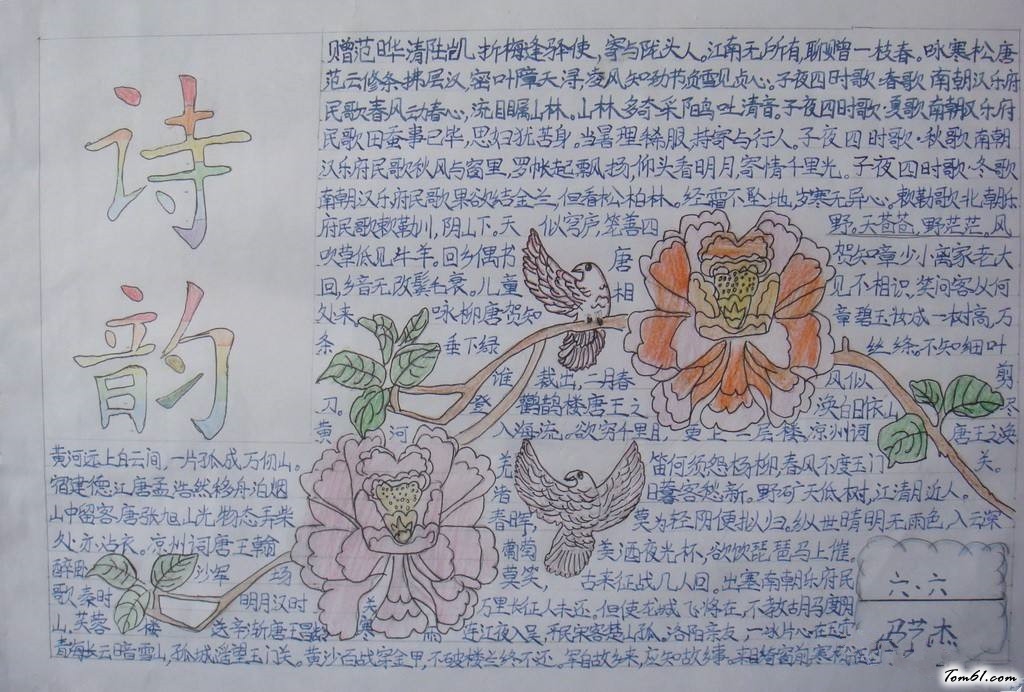 诗
韵
赠范晔清陆凯,折梅逢驿使,寄与陇头人。江南无所有,聊赠一枝春。咏寒松唐
范云修条拂层汉,密叶障天浔,凌风知劲节,负雪见贞心。子夜四时歌·春歌 南朝汉乐府
民歌春风动春心,流目瞩山林。山林多奇采,阳鸟吐清音。子夜四时歌·夏歌南朝汉乐府
民歌田蚕事已毕,思妇犹苦身。当暑理絺服,持寄与行人。子夜四时歌·秋歌南朝
汉乐府民歌秋风与窗里,罗帐起飘扬,仰头看明月,寄情千里光。子夜四时歌·冬歌
南朝汉乐府民歌果欲结金兰,但看松柏林。经霜不坠地,岁寒无异心。敕勒歌北朝乐
府民歌敕勒川,阴山下。天 似穹庐,笼盖四 野。天苍苍,野茫茫。风
吹草低见牛羊。回乡偶书 唐 贺知章少小离家老大
回,乡音无改鬓毛衰。儿童 相 见不相识,笑问客从何
处来。 咏柳唐贺知 章碧玉妆成一树高,万
条 垂下绿 丝绦。不知细叶
谁 裁出,二月春 风似 剪
刀。 登 鹳鹊楼唐王之 涣白日依山 尽
黄 河 入海流。欲穷千里目,更上一层楼。凉州词 唐王之涣
黄河远上白云间,一片孤城万仞山。 羌 笛何须怨杨柳,春风不度玉门 关。
宿建德江唐孟浩然移舟泊烟 渚 日暮客愁新。野旷天低树,江清月近人。
山中留客唐张旭山光物态弄 春晖, 莫为轻阴便拟归。纵使晴明无雨色,入云深
处亦沾衣。凉州词唐王翰 葡萄 美酒夜光杯,欲饮琵琶马上催。
醉卧 沙 场 莫笑, 古来征战几人回。出塞南朝乐府民
歌秦时 明月汉时 关 万里长征人未还。但使龙城飞将在,不教胡马度阴
山。芙蓉 楼 送辛渐唐王昌龄 寒 雨 连江夜入吴,平明 客楚山孤。洛阳亲友 冰心在玉壶
青海长云暗雪山,孤城遥望玉门关。黄沙百战穿金甲,不破楼兰终不还。 自故乡来,应知故乡事。来日绮窗前,寒梅
六.六
马艺杰
Tom61.com